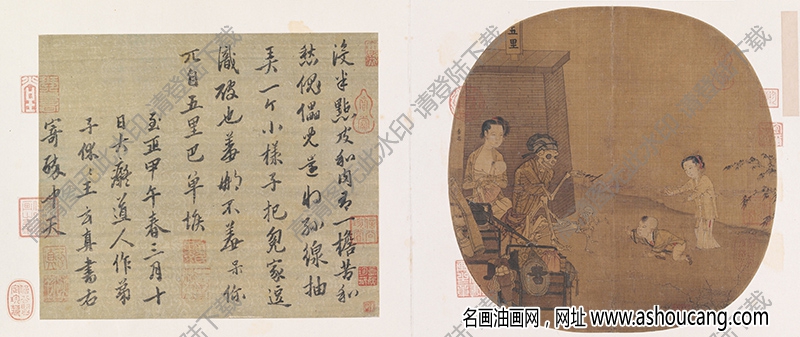 没半點皮和肉有一擔苦和
愁傀儡兒還將絲線抽
弄一个小樣子把冤家逗
識破也羞那不羞呆你
兀自五里巴單堠
至正甲午春三月十
日大癡道人作弟
子休休王玄真書右
寄醉中天
五里
高清图无此水印 请登陆下载
名画油画网，网址 www.ashoucang.com